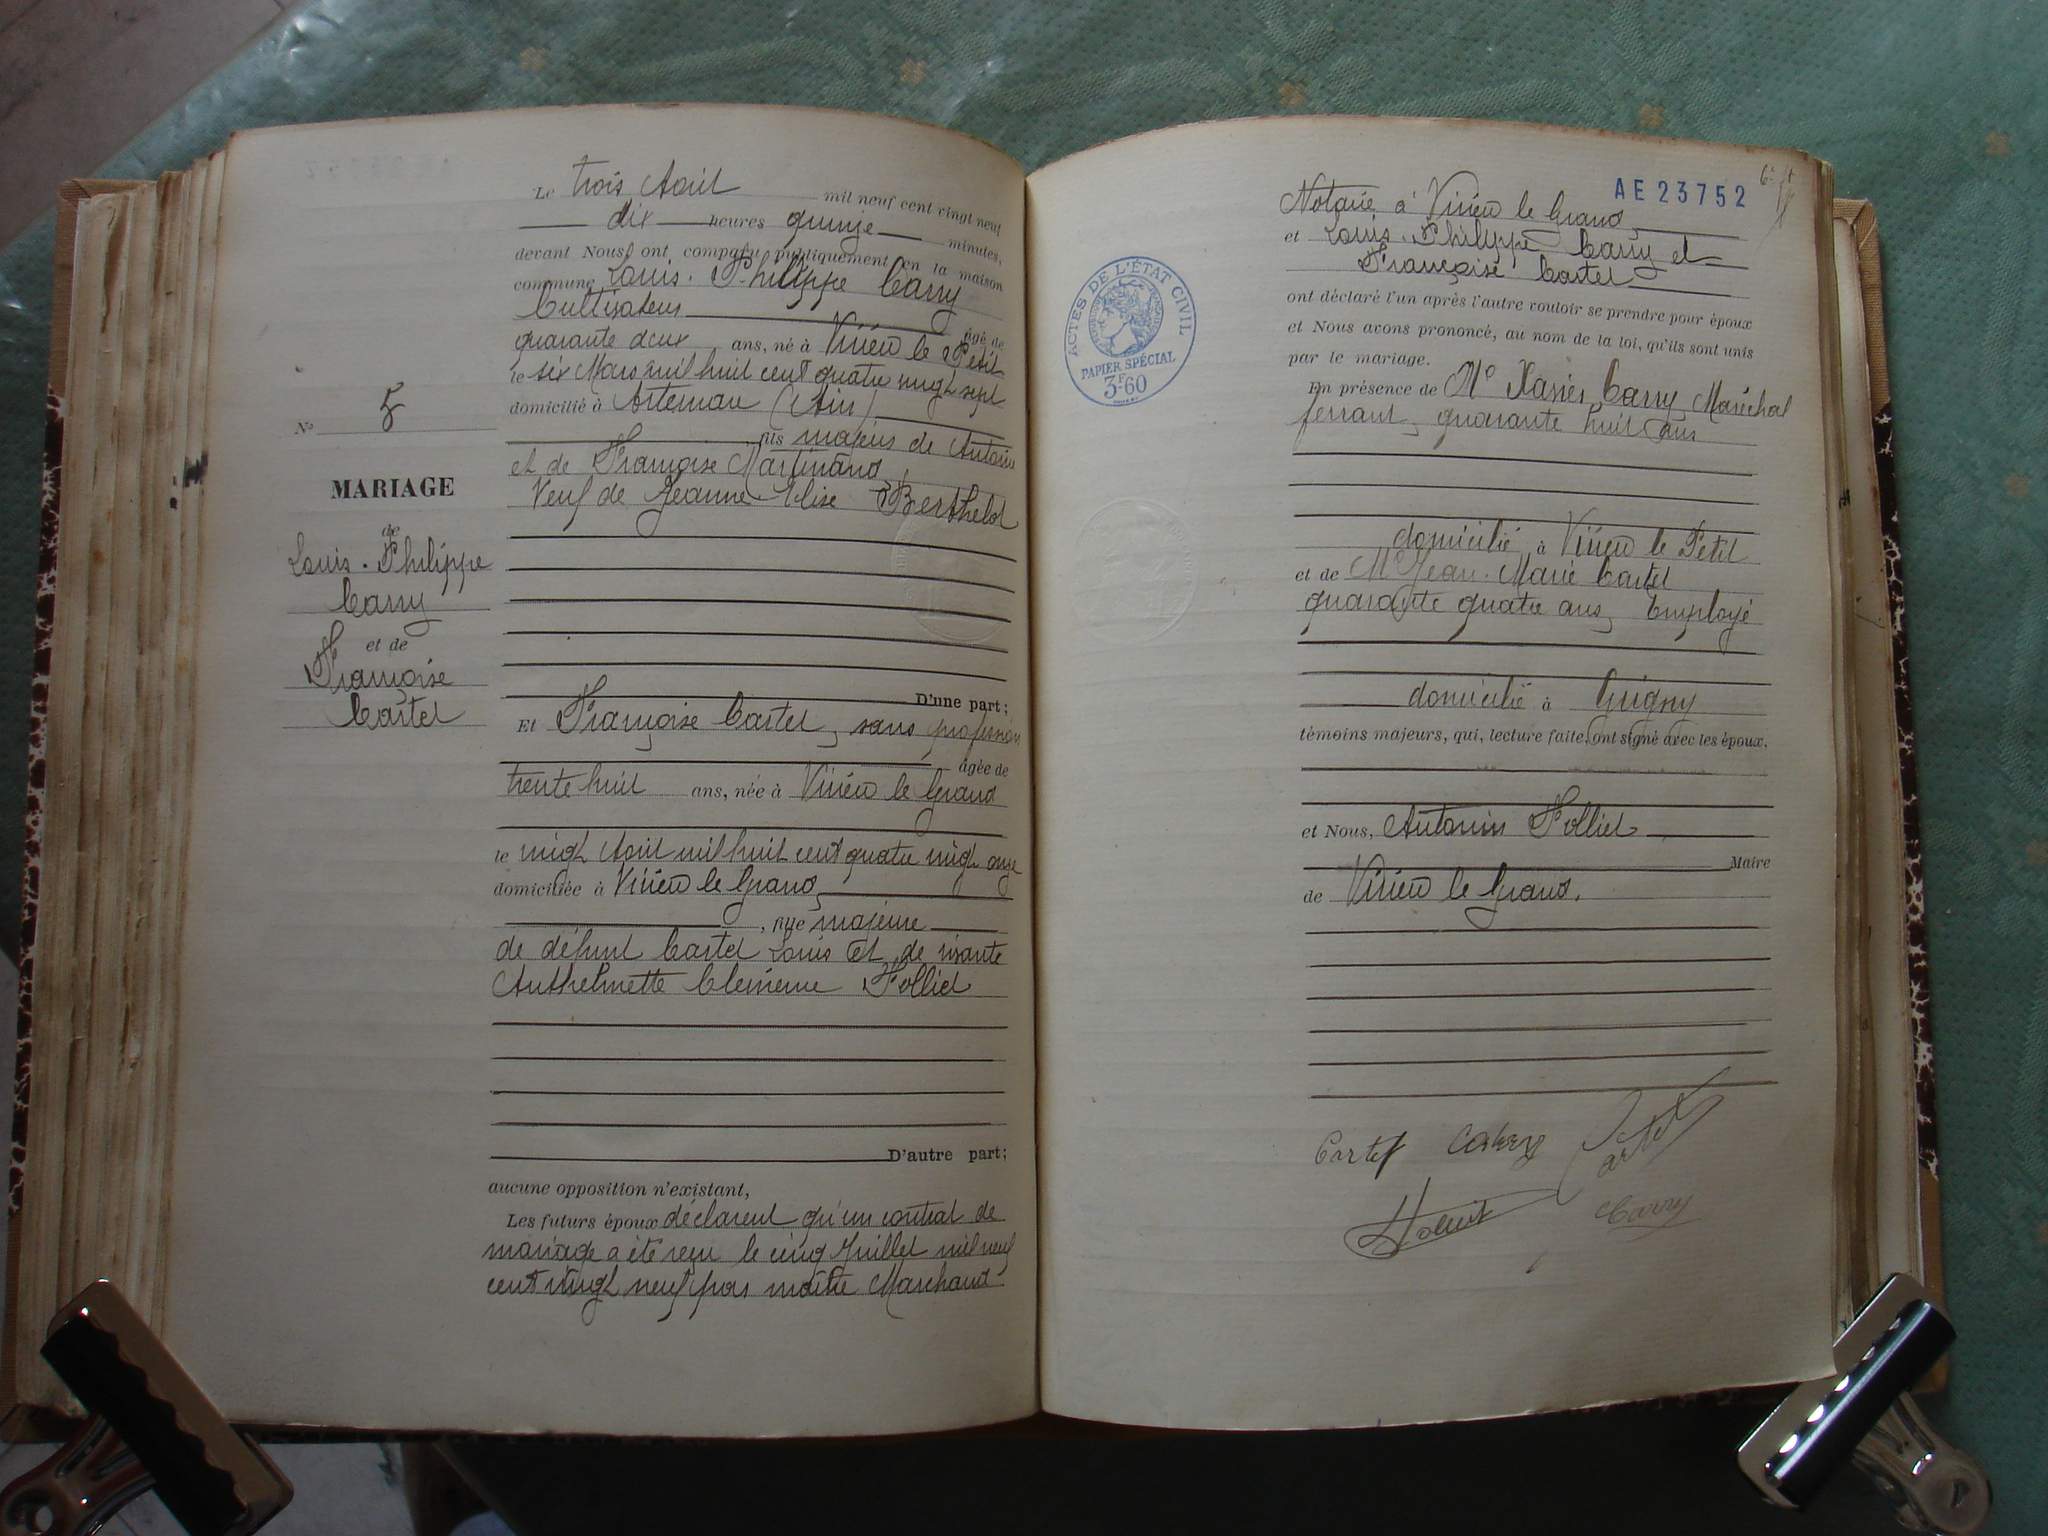 Le trois Août mil neuf cent vingt neuf
dix heures quinze minutes,
devant Nous ont comparu publiquement en la maison
commune Louis. Philippe Carry
Cultivateur
âgé de
quarante deux ans, né à Virieu le Petit
le six Mars mil huit cent quatre vingt sept
domicilié à Artemare (Ain)
fils majeur de Antoine
et de Françoise Martinand
Veuf de Jeanne Elise Berthelot
D'une part;
Et Françoise Cartel, sans profession
âgée de
trente huit ans, née à Virieu le Grand
le vingt Août mil huit cent quatre vingt onze
domiciliée à Virieu le Grand
, fille majeure
de défunt Cartel Louis et de vivante
Anthelmette Clémence Folliet
D'autre part;
aucune opposition n'existant,
Les futurs époux déclarent qu'un contrat de
mariage a été reçu le cinq Juillet mil neuf
cent vingt neuf par maître Marchand
N° 5
MARIAGE
de
Louis. Philippe
Carry
et de
Françoise
Cartel
AE 23752
Notaire à Virieu le Grand
et Louis. Philippe Carry et
Françoise Cartel
ont déclaré l'un après l'autre vouloir se prendre pour époux
et Nous avons prononcé, au nom de la loi, qu'ils sont unis
par le mariage.
En présence de Mr Xavier Carry Maréchal
ferrant, quarante huit ans
domicilié à Virieu le Petit
et de M Jean. Marie Cartel
quarante quatre ans, Employé
domicilié à Grigny
témoins majeurs, qui, lecture faite, ont signé avec les époux,
et Nous, Antonin Folliet
Maire
de Virieu le Grand.
Cartel Carry Cartel
Folliet Carry
ACTES DE L'ÉTAT CIVIL
PAPIER SPÉCIAL
3F60